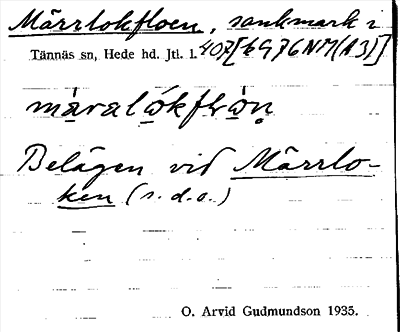 Märrlokfloen, sankmark i
Tännäs sn, Hede hd. Jtl. l. 407[kG76NM(A3)]
Belägen vid Märrlo-
ken (s.d.o.)
O. Arvid Gudmundson 1935.